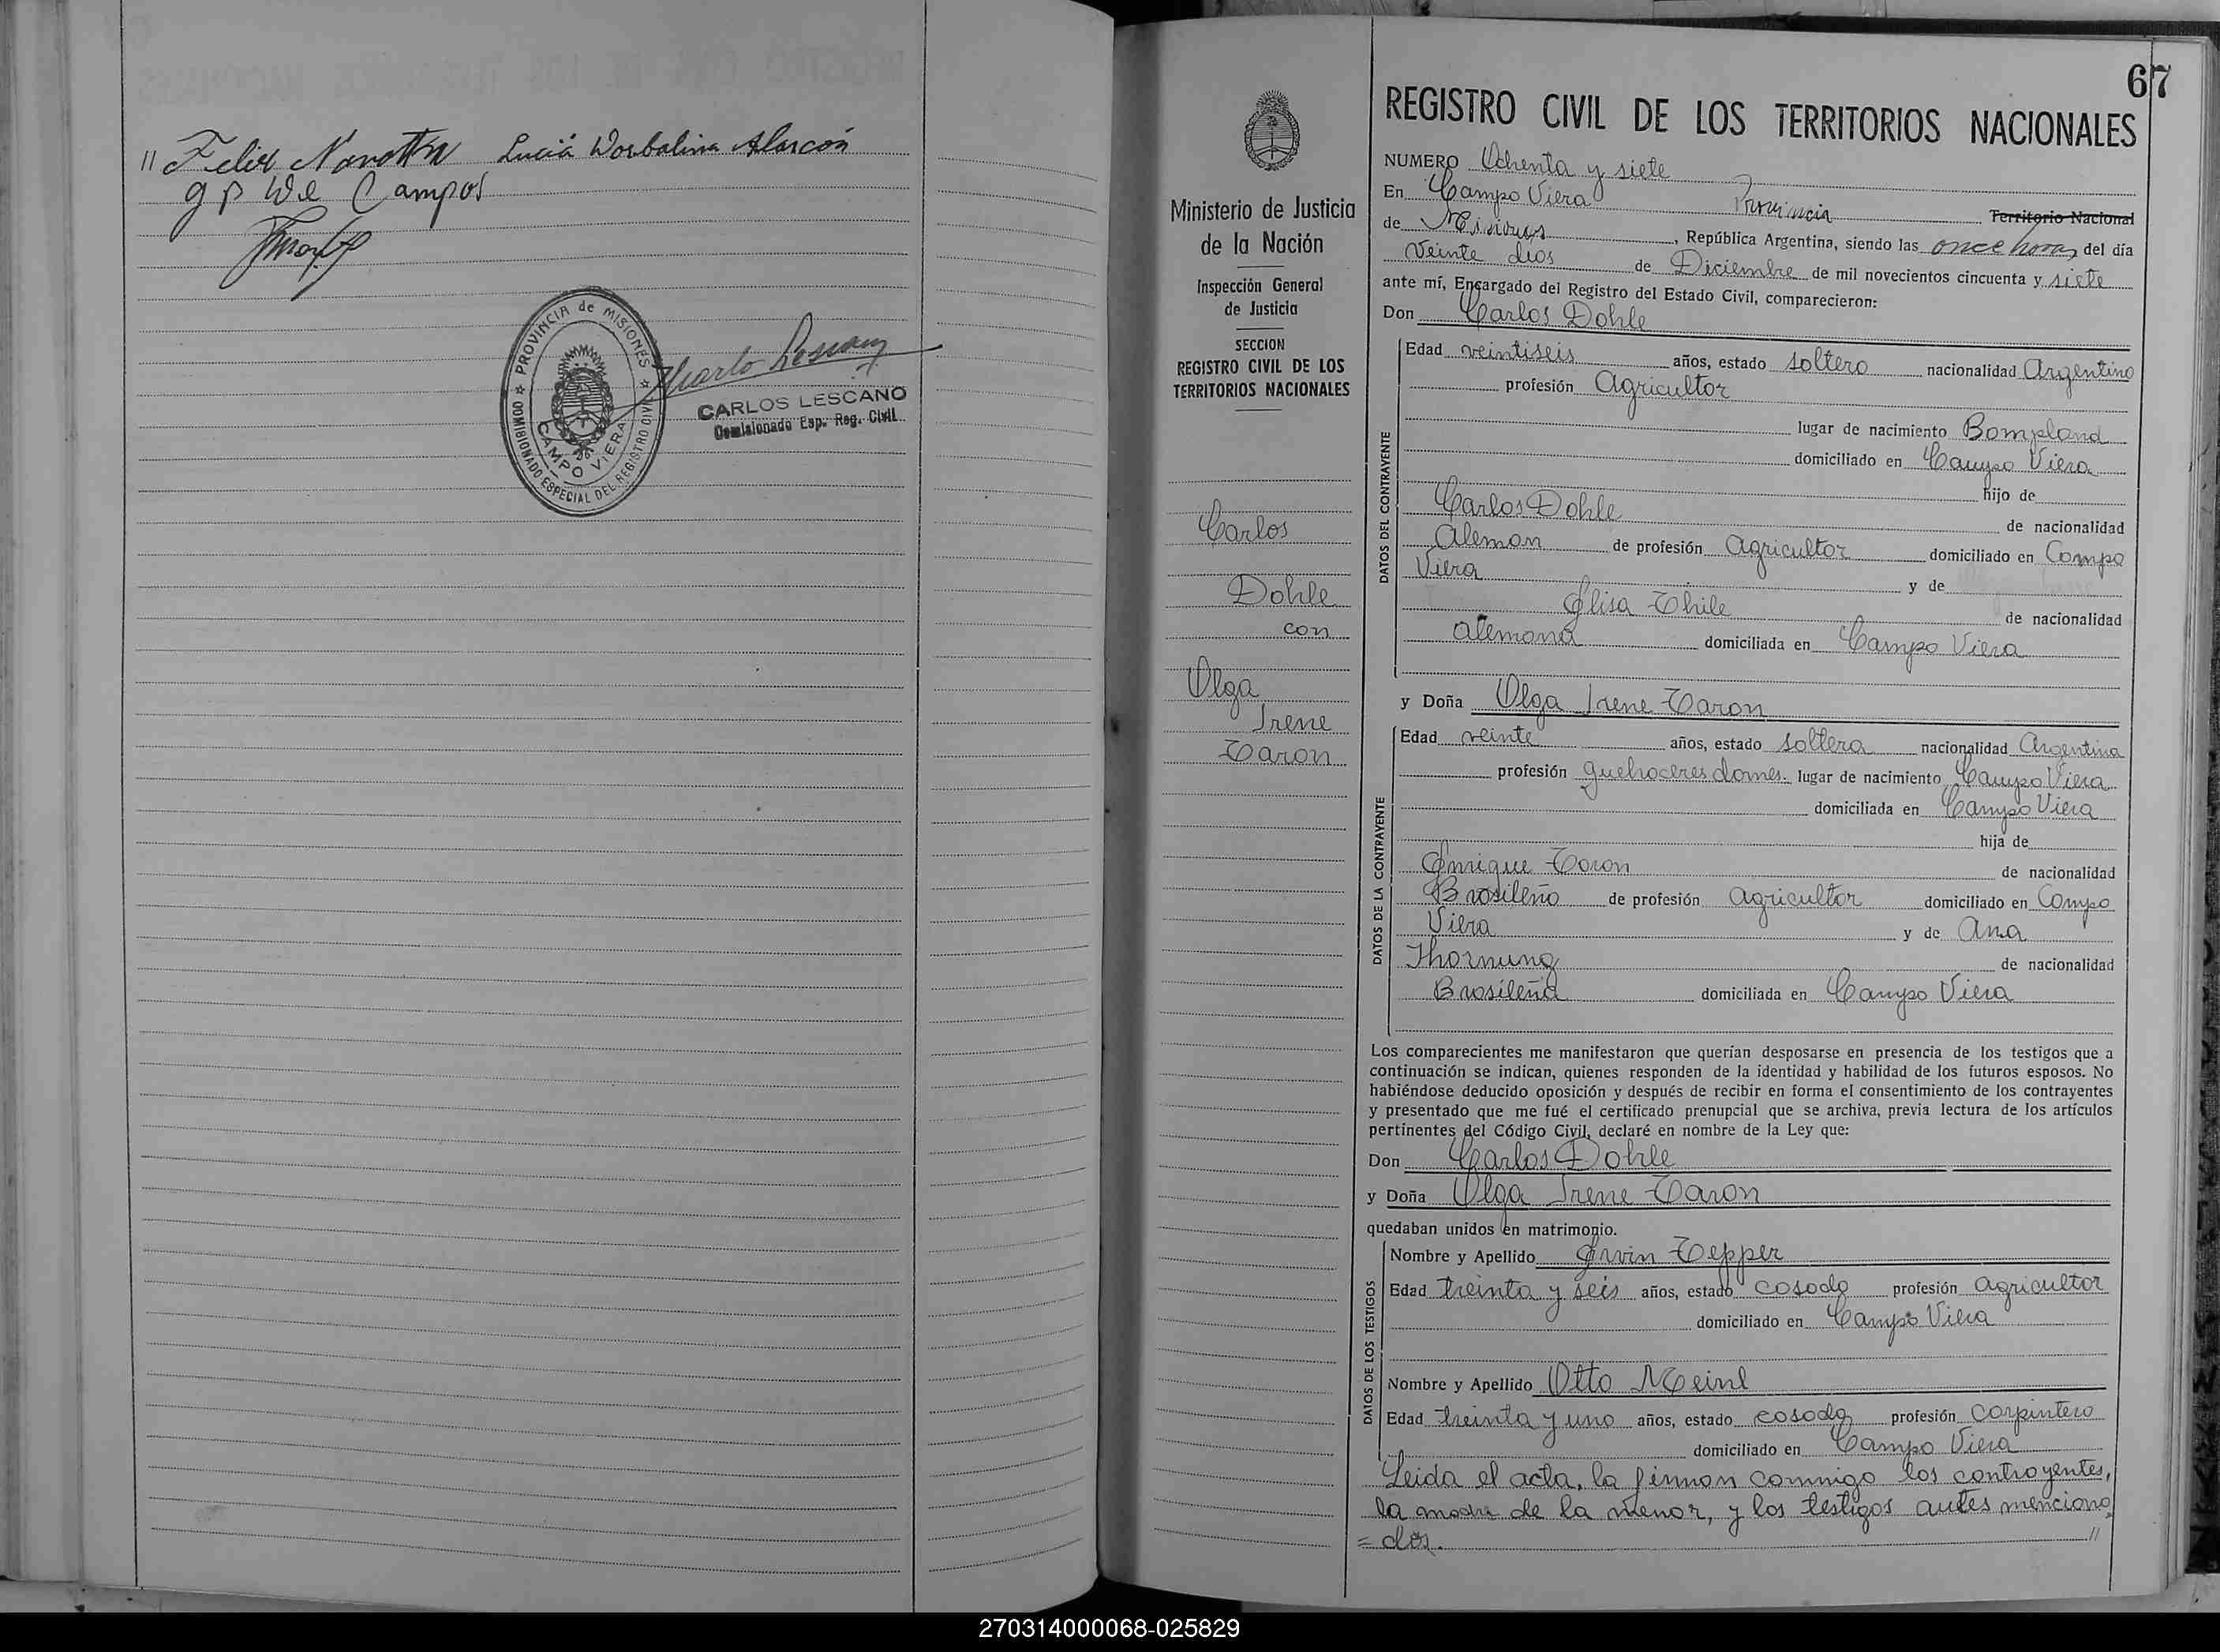 " Felix Lucia Alarcón
Campos
PROVINCIA de MISIONES
COMISIONADO ESPECIAL DEL REGISTRO CIVIL
CAMPO VIERA
Carlo Lescano
CARLOS LESCANO
Comisionado Esp. Reg. Civil
Ministerio de Justicia
de la Nación
Inspección General
de Justicia
SECCION
REGISTRO CIVIL DE LOS
TERRITORIOS NACIONALES
Carlos
Dohle
con
Olga
Irene
Taron
67
REGISTRO CIVIL DE LOS TERRITORIOS NACIONALES
NUMERO Ochenta y siete
En Campo Viera Provincia Territorio Nacional
de Misiones, República Argentina, siendo las once horas, del día
veinte dios de Diciembre de mil novecientos cincuenta y siete
ante mí, Encargado del Registro del Estado Civil, comparecieron:
Don Carlos Dohle
DATOS DEL CONTRAYENTE
Edad veintiseis años, estado soltero nacionalidad Argentino
profesión Agricultor
lugar de nacimiento Bompland
domiciliado en Campo Viera
hijo de
Carlos Dohle de nacionalidad
Aleman de profesión Agricultor domiciliado en Campo
Viera y de
Elisa Thile de nacionalidad
alemana domiciliada en Campo Viera
y Doña Olga Irene Taron
DATOS DE LA CONTRAYENTE
Edad veinte años, estado soltera nacionalidad Argentina
profesión quehaceres domes. lugar de nacimiento Campo Viera
domiciliada en Campo Viera
hija de
Enrique Taron de nacionalidad
Brasileño de profesión Agricultor domiciliado en Campo
Viera y de Ana
Thornung de nacionalidad
Brasileña domiciliada en Campo Viera
Los comparecientes me manifestaron que querían desposarse en presencia de los testigos que a
continuación se indican, quienes responden de la identidad y habilidad de los futuros esposos. No
habiéndose deducido oposición y después de recibir en forma el consentimiento de los contrayentes
y presentado que me fué el certificado prenupcial que se archiva, previa lectura de los artículos
pertinentes del Código Civil, declaré en nombre de la Ley que:
Don Carlos Dohle
y Doña Olga Irene Taron
quedaban unidos en matrimonio.
DATOS DE LOS TESTIGOS
Nombre y Apellido Ervin Tepper
Edad treinta y seis años, estado casado profesión agricultor
domiciliado en Campo Viera
Nombre y Apellido Otto Meinl
Edad treinta y uno años, estado casado profesión carpintero
domiciliado en Campo Viera
Leida el acta, la firman conmigo los contrayentes,
la madre de la menor, y los testigos antes menciona
= dos. //
270314000068-025829